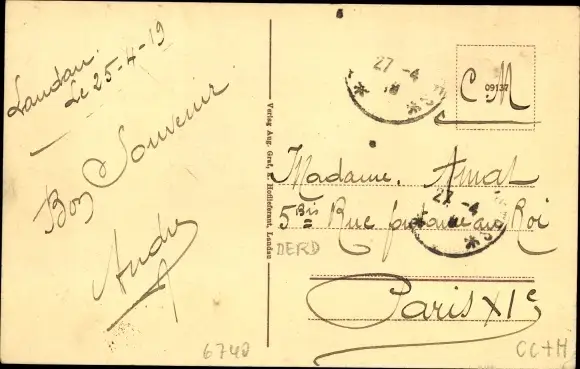 Landau.
Le 25-4-19
Bon Souvenir
André
Verlag Aug. Graf, K. Hoflieferant, Landau
27 -4
C.M
09137
Madame. Amat
27 -4
5 Bis Rue fontaine au Roi
DERD
Paris XIe
6740
CC+M